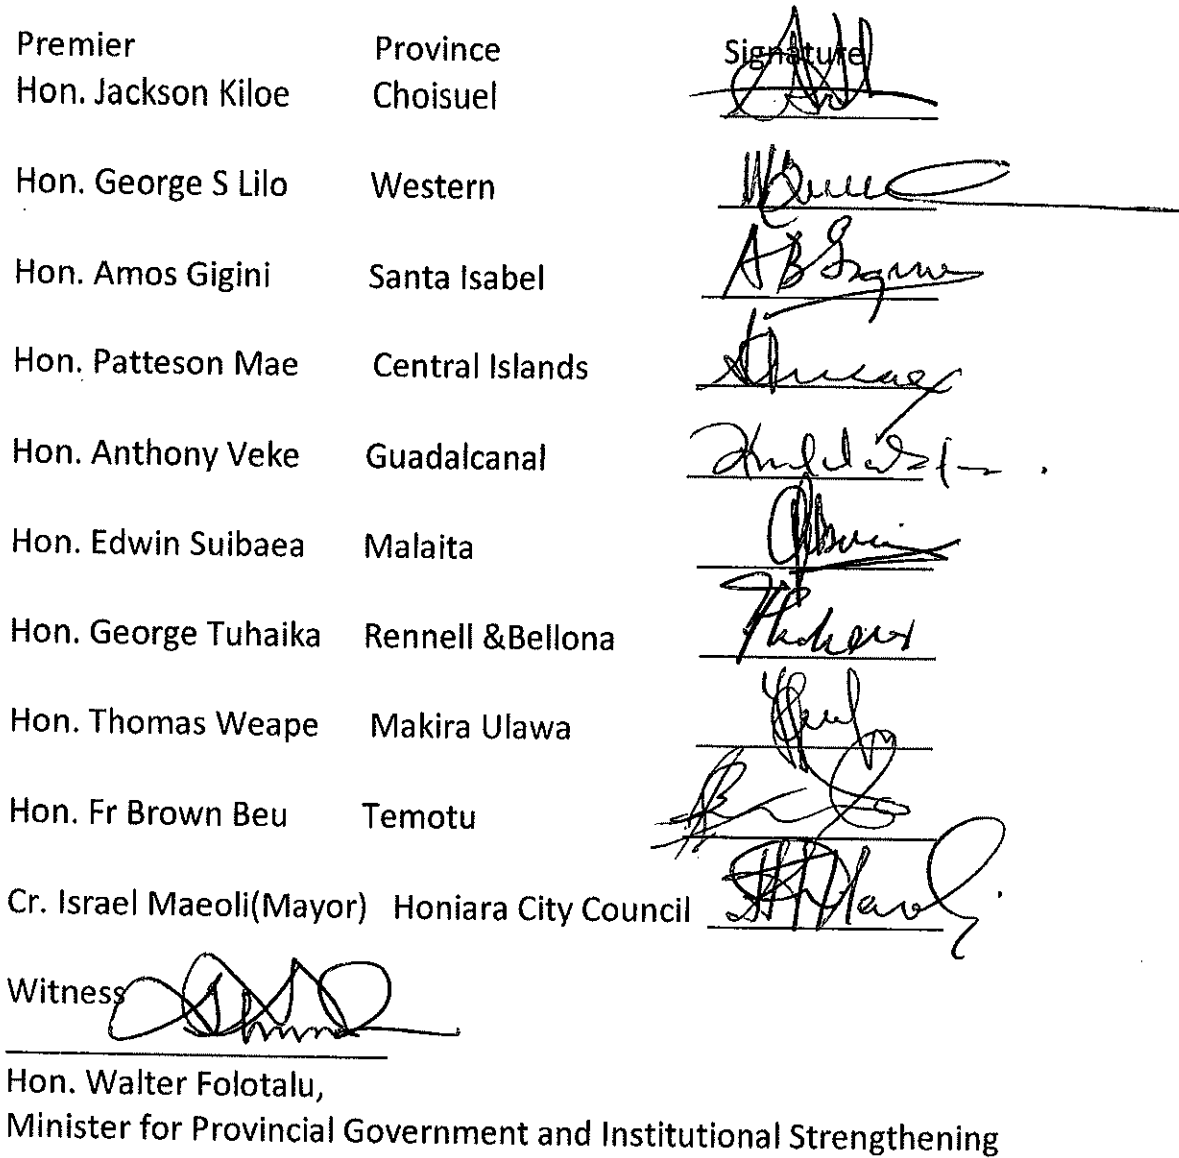 Premier Province Signature
Hon. Jackson Kiloe Choisuel
Hon. George S Lilo Western
Hon. Amos Gigini Santa Isabel
Hon. Patteson Mae Central Islands
Hon. Anthony Veke Guadalcanal
Hon. Edwin Suibaea Malaita
Hon. George Tuhaika Rennell &Bellona
Hon. Thomas Weape Makira Ulawa
Hon. Fr Brown Beu Temotu
Cr. Israel Maeoli(Mayor) Honiara City Council
Witness
Hon. Walter Folotalu,
Minister for Provincial Government and Institutional Strengthening